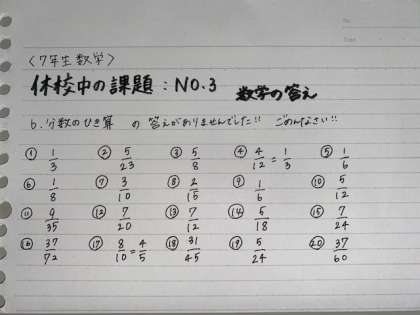 No.
Date
〈7年生数学〉
休校中の課題:NO.3 数学の答え
6.分数のひき算 の答えがありませんでした!! ごめんなさい!!
① 1/3 ② 5/23 ③ 5/8 ④ 4/12 = 1/3 ⑤ 1/6
⑥ 1/8 ⑦ 3/10 ⑧ 2/15 ⑨ 1/6 ⑩ 5/12
⑪ 9/35 ⑫ 7/20 ⑬ 7/12 ⑭ 5/18 ⑮ 7/24
⑯ 37/72 ⑰ 8/10 = 4/5 ⑱ 31/45 ⑲ 5/24 ⑳ 37/60